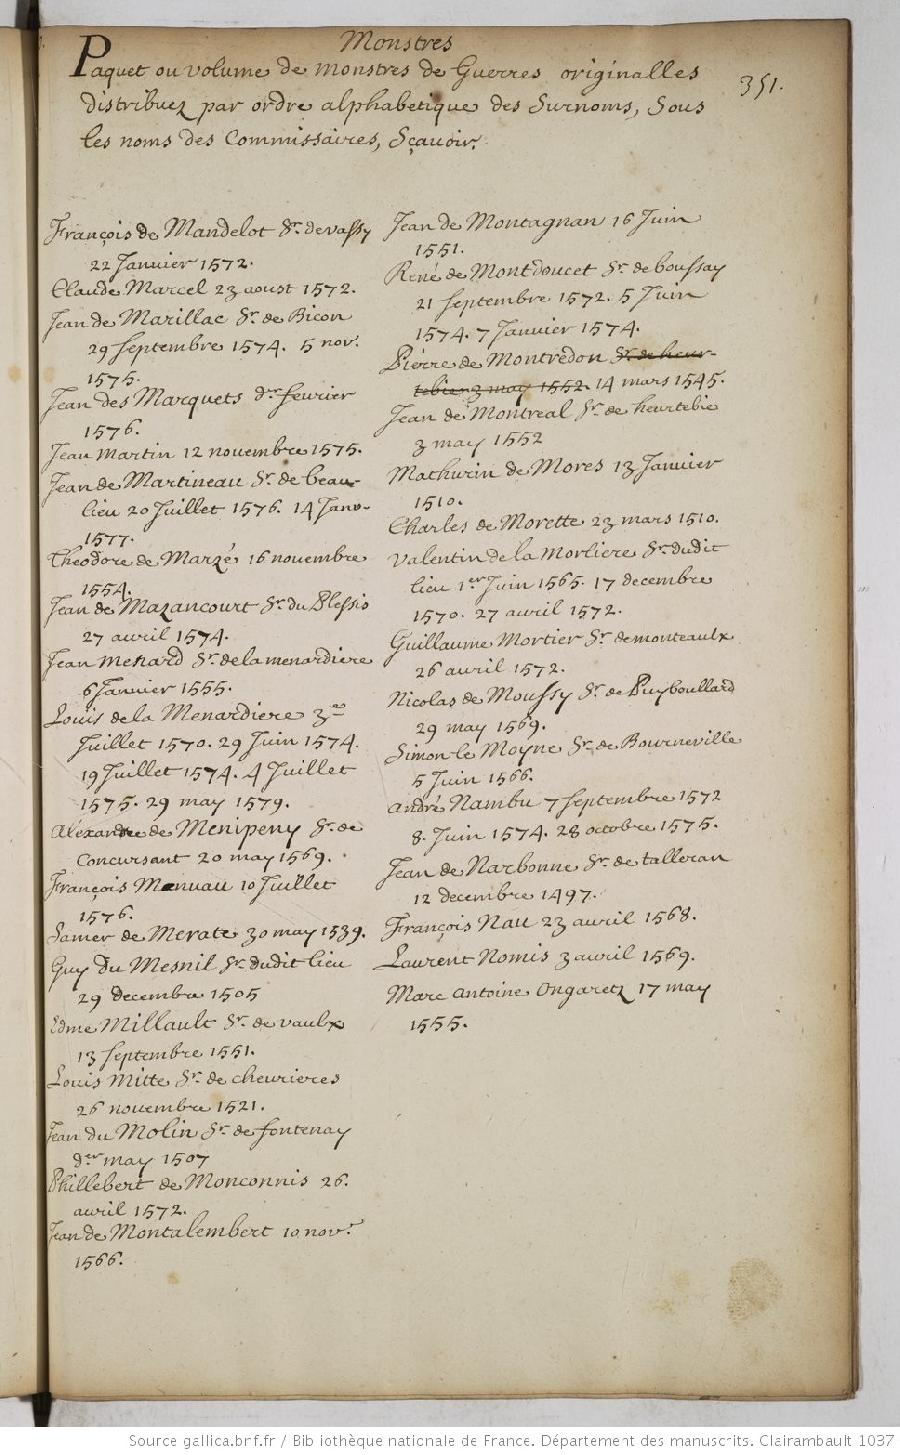 Monstres
351.
Paquet ou volume de monstres de Guerres originalles
distribuez par ordre alphabetique des Surnoms, Sous
les noms des Commissaires, Sçauoir.
François de Mandelot Sr. de vassy
22 Januier 1572.
Claude Marcel 23 aoust 1572.
Jean de Marillac Sr. de Bicon
29 Septembre 1574. 5 nov.
1575.
Jean des Marquets der feurier
1576.
Jean Martin 12 nouembre 1575.
Jean de Martineau Sr. de beau-
lieu 20 Juillet 1576. 14 Janv.
1577.
Théodore de Marzé 16 nouembre
1554.
Jean de Mazancourt Sr. du Plessis
27 auril 1574.
Jean Menard Sr. de la menardiere
6 Januier 1555.
Louis de la Menardiere 3e
Juillet 1570. 29 Juin 1574.
19 Juillet 1574. 4 Juillet
1575. 29 may 1579.
Alexandre de Menipeny Sr. de
Concursant 20 may 1569.
François Menuau 10 Juillet
1576.
Samer de Merate 30 may 1539.
Guy du Mesnil Sr. dudit lieu
29 decembre 1505
Edme Millault Sr. de vaulx
13 Septembre 1551.
Louis Mitte Sr. de cheurieres
26 nouembre 1521.
Jean du Molin Sr. de fontenay
der may 1507
Phillebert de Monconnis 26.
auril 1572.
Jean de Montalembert 10 nov.
1566.
Jean de Montagnan 16 Juin
1551.
René de Montdoucet Sr. de boussay
21 Septembre 1572. 5 Juin
1574. 7 Januier 1574.
Pierre de Montredon Sr. de heur-
tebien 3 may 1552. 14 mars 1545.
Jean de Montreal Sr. de heurtebie
3 may 1552
Mathurin de Mores 13 Januier
1510.
Charles de Morette 23 mars 1510.
Valentin de la Morliere Sr. dudit
lieu 1er Juin 1565. 17 decembre
1570. 27 auril 1572.
Guillaume Mortier Sr. de monteaulx
26 auril 1572.
Nicolas de Moussy Sr. de Puyboullard
29 may 1569.
Simon le Moyne Sr. de Bourneville
5 Juin 1566.
André Nambu 7 Septembre 1572
8. Juin 1574. 28 octobre 1575.
Jean de Narbonne Sr. de talleran
12 decembre 1497.
François Nau 23 auril 1568.
Laurent Nomis 3 auril 1569.
Marc Antoine Ongaretz 17 may
1555.
Source gallica.bnf.fr / Bibliothèque nationale de France. Département des manuscrits. Clairambault 1037